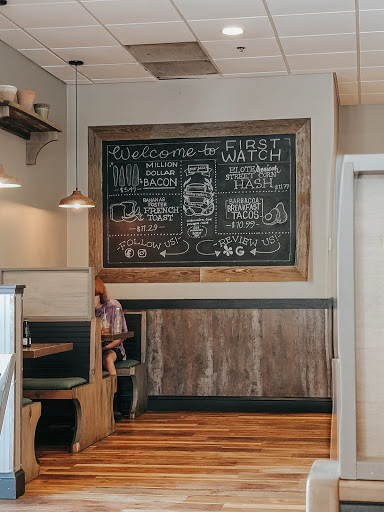 Welcome to FIRST WATCH
MILLION
DOLLAR
BACON
$5.49
BANANAS
FOSTER
FRENCH
TOAST
$11.29
ELOTE Mexican
STREET CORN
HASH $11.79
BARBACOA
BREAKFAST
TACOS
$10.99
FOLLOW US!
REVIEW US!
G